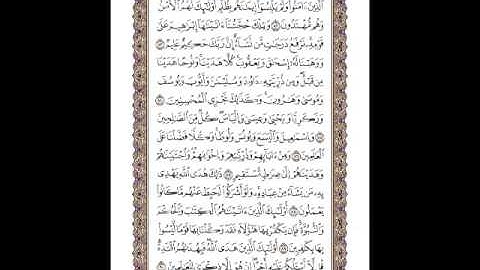 ٱلَّذِينَ ءَامَنُوا۟ وَلَمْ يَلْبِسُوٓا۟ إِيمَٰنَهُم بِظُلْمٍ أُو۟لَٰٓئِكَ لَهُمُ ٱلْأَمْنُ
وَهُم مُّهْتَدُونَ ٨٢ وَتِلْكَ حُجَّتُنَآ ءَاتَيْنَٰهَآ إِبْرَٰهِيمَ عَلَىٰ
قَوْمِهِۦ نَرْفَعُ دَرَجَٰتٍ مَّن نَّشَآءُ إِنَّ رَبَّكَ حَكِيمٌ عَلِيمٌ ٨٣
وَوَهَبْنَا لَهُۥٓ إِسْحَٰقَ وَيَعْقُوبَ كُلًّا هَدَيْنَا وَنُوحًا هَدَيْنَا
مِن قَبْلُ وَمِن ذُرِّيَّتِهِۦ دَاوُۥدَ وَسُلَيْمَٰنَ وَأَيُّوبَ وَيُوسُفَ
وَمُوسَىٰ وَهَٰرُونَ وَكَذَٰلِكَ نَجْزِى ٱلْمُحْسِنِينَ ٨٤
وَزَكَرِيَّا وَيَحْيَىٰ وَعِيسَىٰ وَإِلْيَاسَ كُلٌّ مِّنَ ٱلصَّٰلِحِينَ
٨٥ وَإِسْمَٰعِيلَ وَٱلْيَسَعَ وَيُونُسَ وَلُوطًا وَكُلًّا فَضَّلْنَا عَلَى
ٱلْعَٰلَمِينَ ٨٦ وَمِنْ ءَابَآئِهِمْ وَذُرِّيَّٰتِهِمْ وَإِخْوَٰنِهِمْ وَٱجْتَبَيْنَٰهُمْ
وَهَدَيْنَٰهُمْ إِلَىٰ صِرَٰطٍ مُّسْتَقِيمٍ ٨٧ ذَٰلِكَ هُدَى ٱللَّهِ يَهْدِى
بِهِۦ مَن يَشَآءُ مِنْ عِبَادِهِۦ وَلَوْ أَشْرَكُوا۟ لَحَبِطَ عَنْهُم مَّا كَانُوا۟
يَعْمَلُونَ ٨٨ أُو۟لَٰٓئِكَ ٱلَّذِينَ ءَاتَيْنَٰهُمُ ٱلْكِتَٰبَ وَٱلْحُكْمَ
وَٱلنُّبُوَّةَ فَإِن يَكْفُرْ بِهَا هَٰٓؤُلَآءِ فَقَدْ وَكَّلْنَا بِهَا قَوْمًا لَّيْسُوا۟
بِهَا بِكَٰفِرِينَ ٨٩ أُو۟لَٰٓئِكَ ٱلَّذِينَ هَدَى ٱللَّهُ فَبِهُدَىٰهُمُ ٱقْتَدِهْ
قُل لَّآ أَسْـَٔلُكُمْ عَلَيْهِ أَجْرًا إِنْ هُوَ إِلَّا ذِكْرَىٰ لِلْعَٰلَمِينَ ٩٠